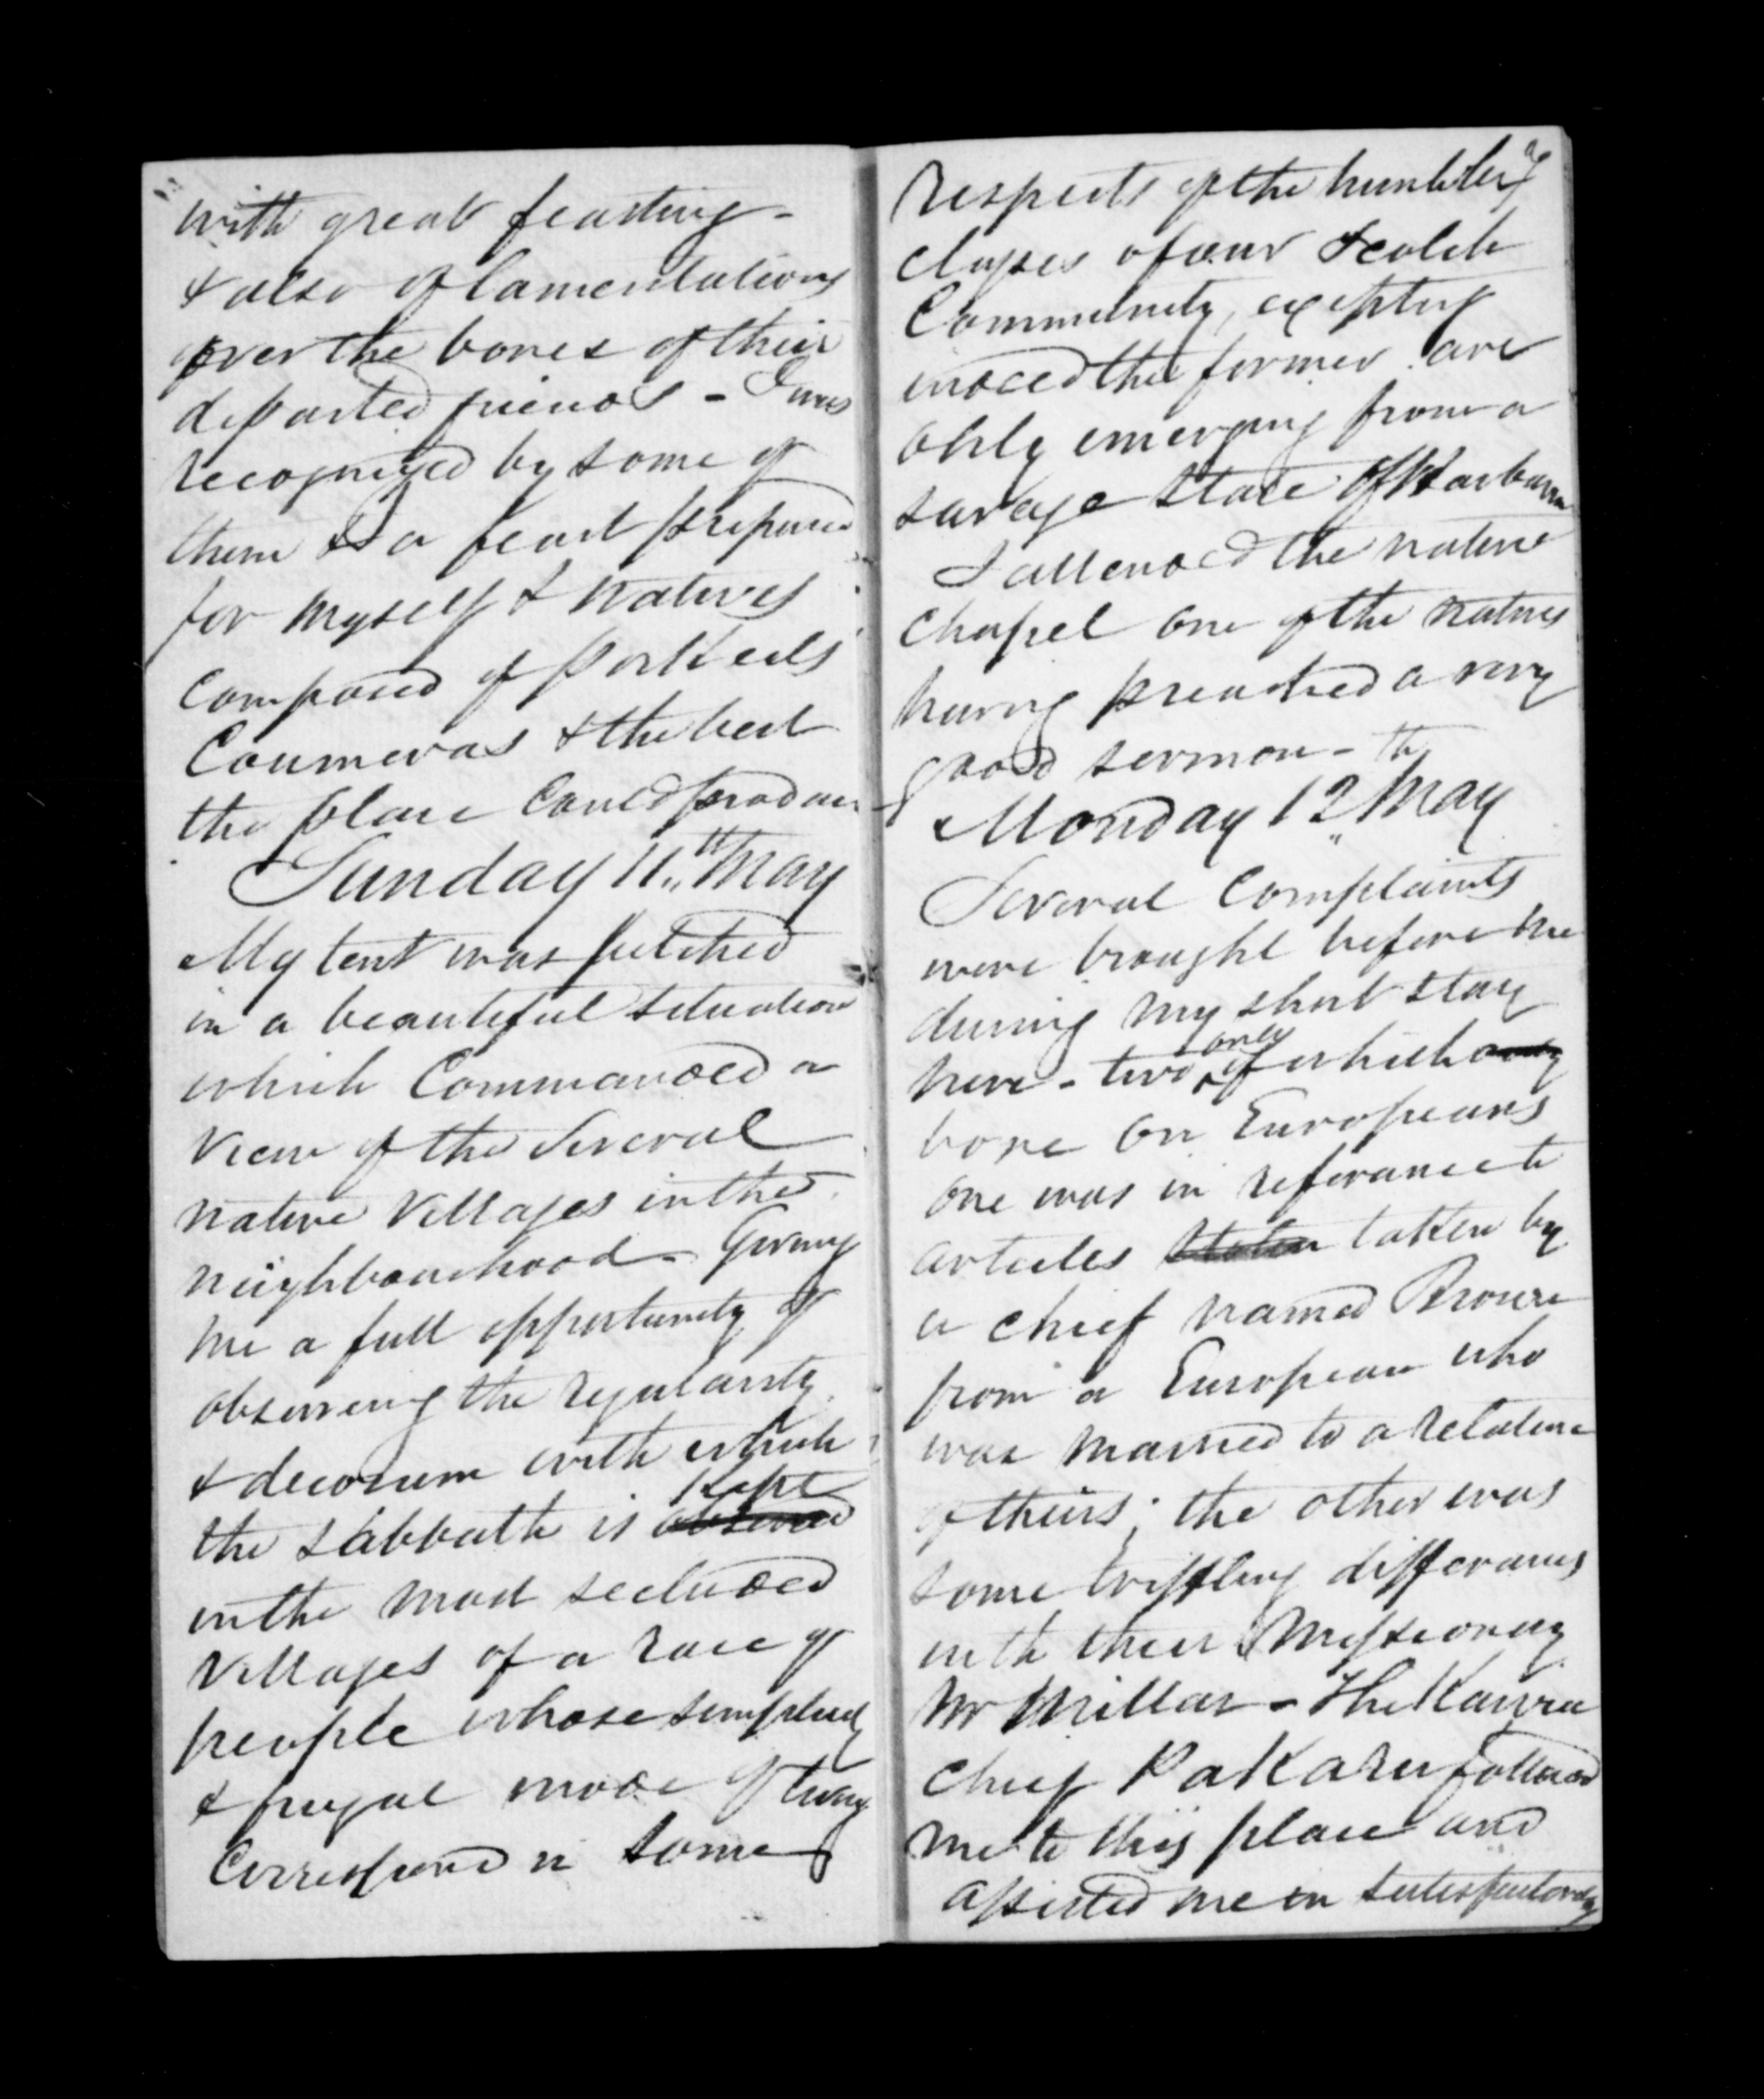 with great feasting -
& also of lamentations
over the bones of their
departed friends - I was
recognized by some of
them & a feast prepared
for myself & natives
composed of pork eels
Coumeras & the best
the place could produce
Sunday 11th May
My tent was pitched
in a beautiful situation
which Commanded a
view of the several
native Villages in the
neighbourhood - Giving
me a full opportunity of
observing the regularity
& decorum with which
the sabbath is observed kept
in the most secluded
Villages of a race of
people whose simplicity
& frugal mode of living
Correspond in some
respects of the humbler
classes of our Scotch
Community, excepting
indeed the former are
only emerging from a
savage state of Barbarism
I attended the native
chapel one of the natives
having preached a very
good sermon -
Monday 12th May
Several Complaints
were brought before me
during my short stay
here - two only of which only
bore on Europeans
one was in referance to
articles stolen taken by
a chief named
from a European who
was married to a relative
of theirs; the other was
some triffling differances
with their Missionary
Mr Millar - The Kawia
chief PaKaru followed
me to this place and
assisted me in satisfactorily